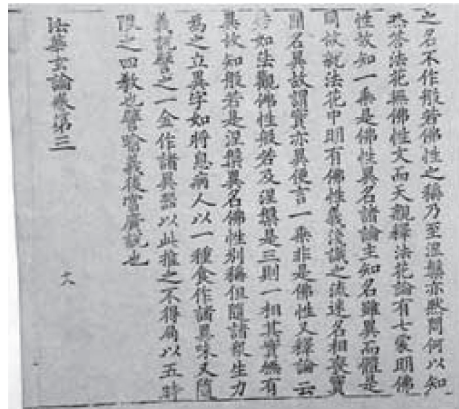 之名不作般若佛性之稱乃至涅槃亦然問何以知
然答法花無佛性文而天親釋法花論有七處明佛
性故知一乗是佛性異名諸論主知名雖異而體是
同故就法花中明有佛性義淺識之流迷名喪實
聞名異故謂實亦異便言一乗非是佛性又釋論云
若如法觀佛性般若及涅槃是三則一相其實無有
異故知般若是涅槃異名佛性別稱但隨諸衆生力
為之立異字如將息病人以一種食作諸異味又隨
義説譬之一金作諸異器以此推之不得局以五時
限之四教也譬喻義後當廣説也
法華玄論卷第三
十八